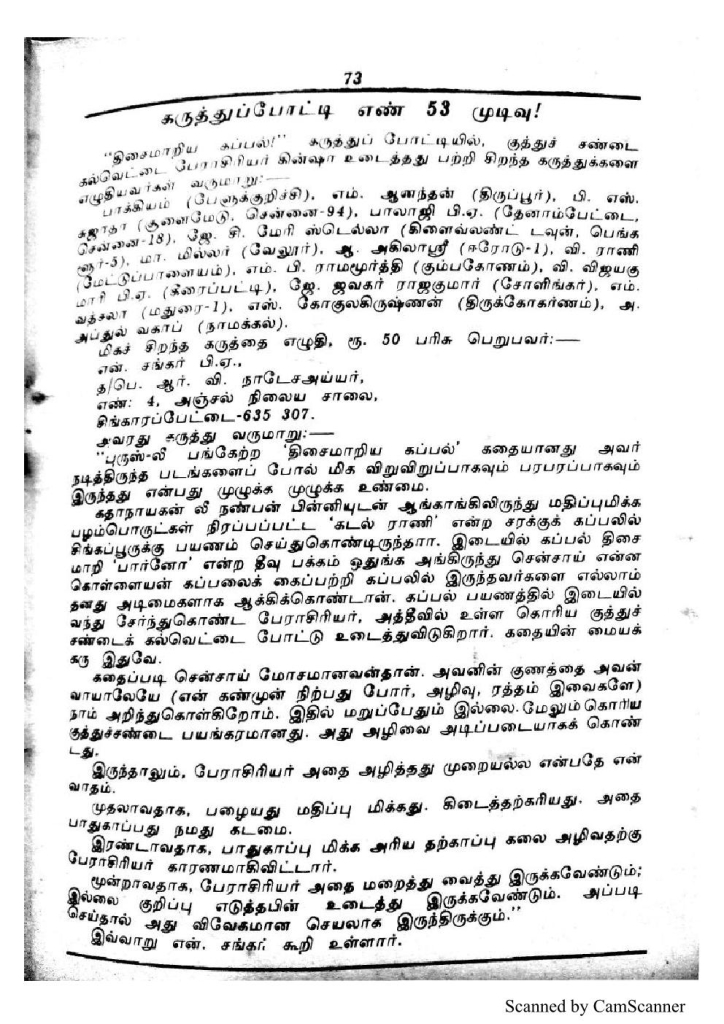 73
கருத்துப்போட்டி எண் 53 முடிவு!
"திசைமாறிய கப்பல்!" கருத்துப் போட்டியில், குத்துச் சண்டை
கல்வெட்டை பேராசிரியர் கின்ஷா உடைத்தது பற்றி சிறந்த கருத்துக்களை
எழுதியவர்கள் வருமாறு:—
பாக்கியம் (பேளுக்குறிச்சி), எம். ஆனந்தன் (திருப்பூர்), பி. எஸ்.
சுஜாதா (சூளைமேடு, சென்னை-94), பாலாஜி பி.ஏ. (தேனாம்பேட்டை,
சென்னை-18), ஜே. சி. மேரி ஸ்டெல்லா (கிளைவ்லண்ட் டவுன், பெங்க
ளூர்-5), மா. மில்லர் (வேலூர்), ஆ. அகிலாஸ்ரீ (ஈரோடு-1), வி. ராணி
(மேட்டுப்பாளையம்), எம். பி. ராமமூர்த்தி (கும்பகோணம்), வி. விஜயகு
மாரி பி.ஏ. (கீரைப்பட்டி), ஜே. ஜவகர் ராஜகுமார் (சோளிங்கர்), எம்.
வத்சலா (மதுரை-1), எஸ். கோகுலகிருஷ்ணன் (திருக்கோகர்ணம்), அ.
அப்துல் வகாப் (நாமக்கல்).
மிகச் சிறந்த கருத்தை எழுதி, ரூ. 50 பரிசு பெறுபவர்:—
என். சங்கர் பி.ஏ.,
த/பெ. ஆர். வி. நாடேசஅய்யர்,
எண்: 4, அஞ்சல் நிலைய சாலை,
சிங்காரப்பேட்டை-635 307.
அவரது கருத்து வருமாறு:—
"புருஸ்-லீ பங்கேற்ற 'திசைமாறிய கப்பல்' கதையானது அவர்
நடித்திருந்த படங்களைப் போல் மிக விறுவிறுப்பாகவும் பரபரப்பாகவும்
இருந்தது என்பது முழுக்க முழுக்க உண்மை.
கதாநாயகன் லீ நண்பன் பின்னியுடன் ஆங்காங்கிலிருந்து மதிப்புமிக்க
பழம்பொருட்கள் நிரப்பப்பட்ட 'கடல் ராணி' என்ற சரக்குக் கப்பலில்
சிங்கப்பூருக்கு பயணம் செய்துகொண்டிருந்தார். இடையில் கப்பல் திசை
மாறி 'பார்னோ' என்ற தீவு பக்கம் ஒதுங்க அங்கிருந்து சென்சாய் என்ன
கொள்ளையன் கப்பலைக் கைப்பற்றி கப்பலில் இருந்தவர்களை எல்லாம்
தனது அடிமைகளாக ஆக்கிக்கொண்டான். கப்பல் பயணத்தில் இடையில்
வந்து சேர்ந்துகொண்ட பேராசிரியர், அத்தீவில் உள்ள கொரிய குத்துச்
சண்டைக் கல்வெட்டை போட்டு உடைத்துவிடுகிறார். கதையின் மையக்
கரு இதுவே.
கதைப்படி சென்சாய் மோசமானவன்தான். அவனின் குணத்தை அவன்
வாயாலேயே (என் கண்முன் நிற்பது போர், அழிவு, ரத்தம் இவைகளே)
நாம் அறிந்துகொள்கிறோம். இதில் மறுப்பேதும் இல்லை. மேலும் கொரிய
குத்துச்சண்டை பயங்கரமானது. அது அழிவை அடிப்படையாகக் கொண்
டது.
இருந்தாலும், பேராசிரியர் அதை அழித்தது முறையல்ல என்பதே என்
வாதம்.
முதலாவதாக, பழையது மதிப்பு மிக்கது. கிடைத்தற்கரியது. அதை
பாதுகாப்பது நமது கடமை.
இரண்டாவதாக, பாதுகாப்பு மிக்க அரிய தற்காப்பு கலை அழிவதற்கு
பேராசிரியர் காரணமாகிவிட்டார்.
மூன்றாவதாக, பேராசிரியர் அதை மறைத்து வைத்து இருக்கவேண்டும்;
இல்லை குறிப்பு எடுத்தபின் உடைத்து இருக்கவேண்டும். அப்படி
செய்தால் அது விவேகமான செயலாக இருந்திருக்கும்."
இவ்வாறு என். சங்கர் கூறி உள்ளார்.
Scanned by CamScanner